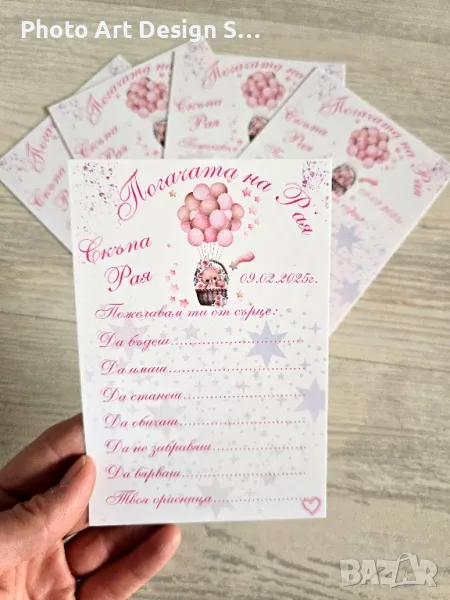 Photo Art Design S...
Погачата на
Скъпа
Рая
Погачата на
Скъпа
Рая
Погачата на Рая
Скъпа
Рая
09.02.2025г.
Пожелавам ти от сърце:
Да бъдеш
Да имаш
Да станеш
Да обичаш
Да не забравяш
Да вярваш
Твоя орисница
BAZAR